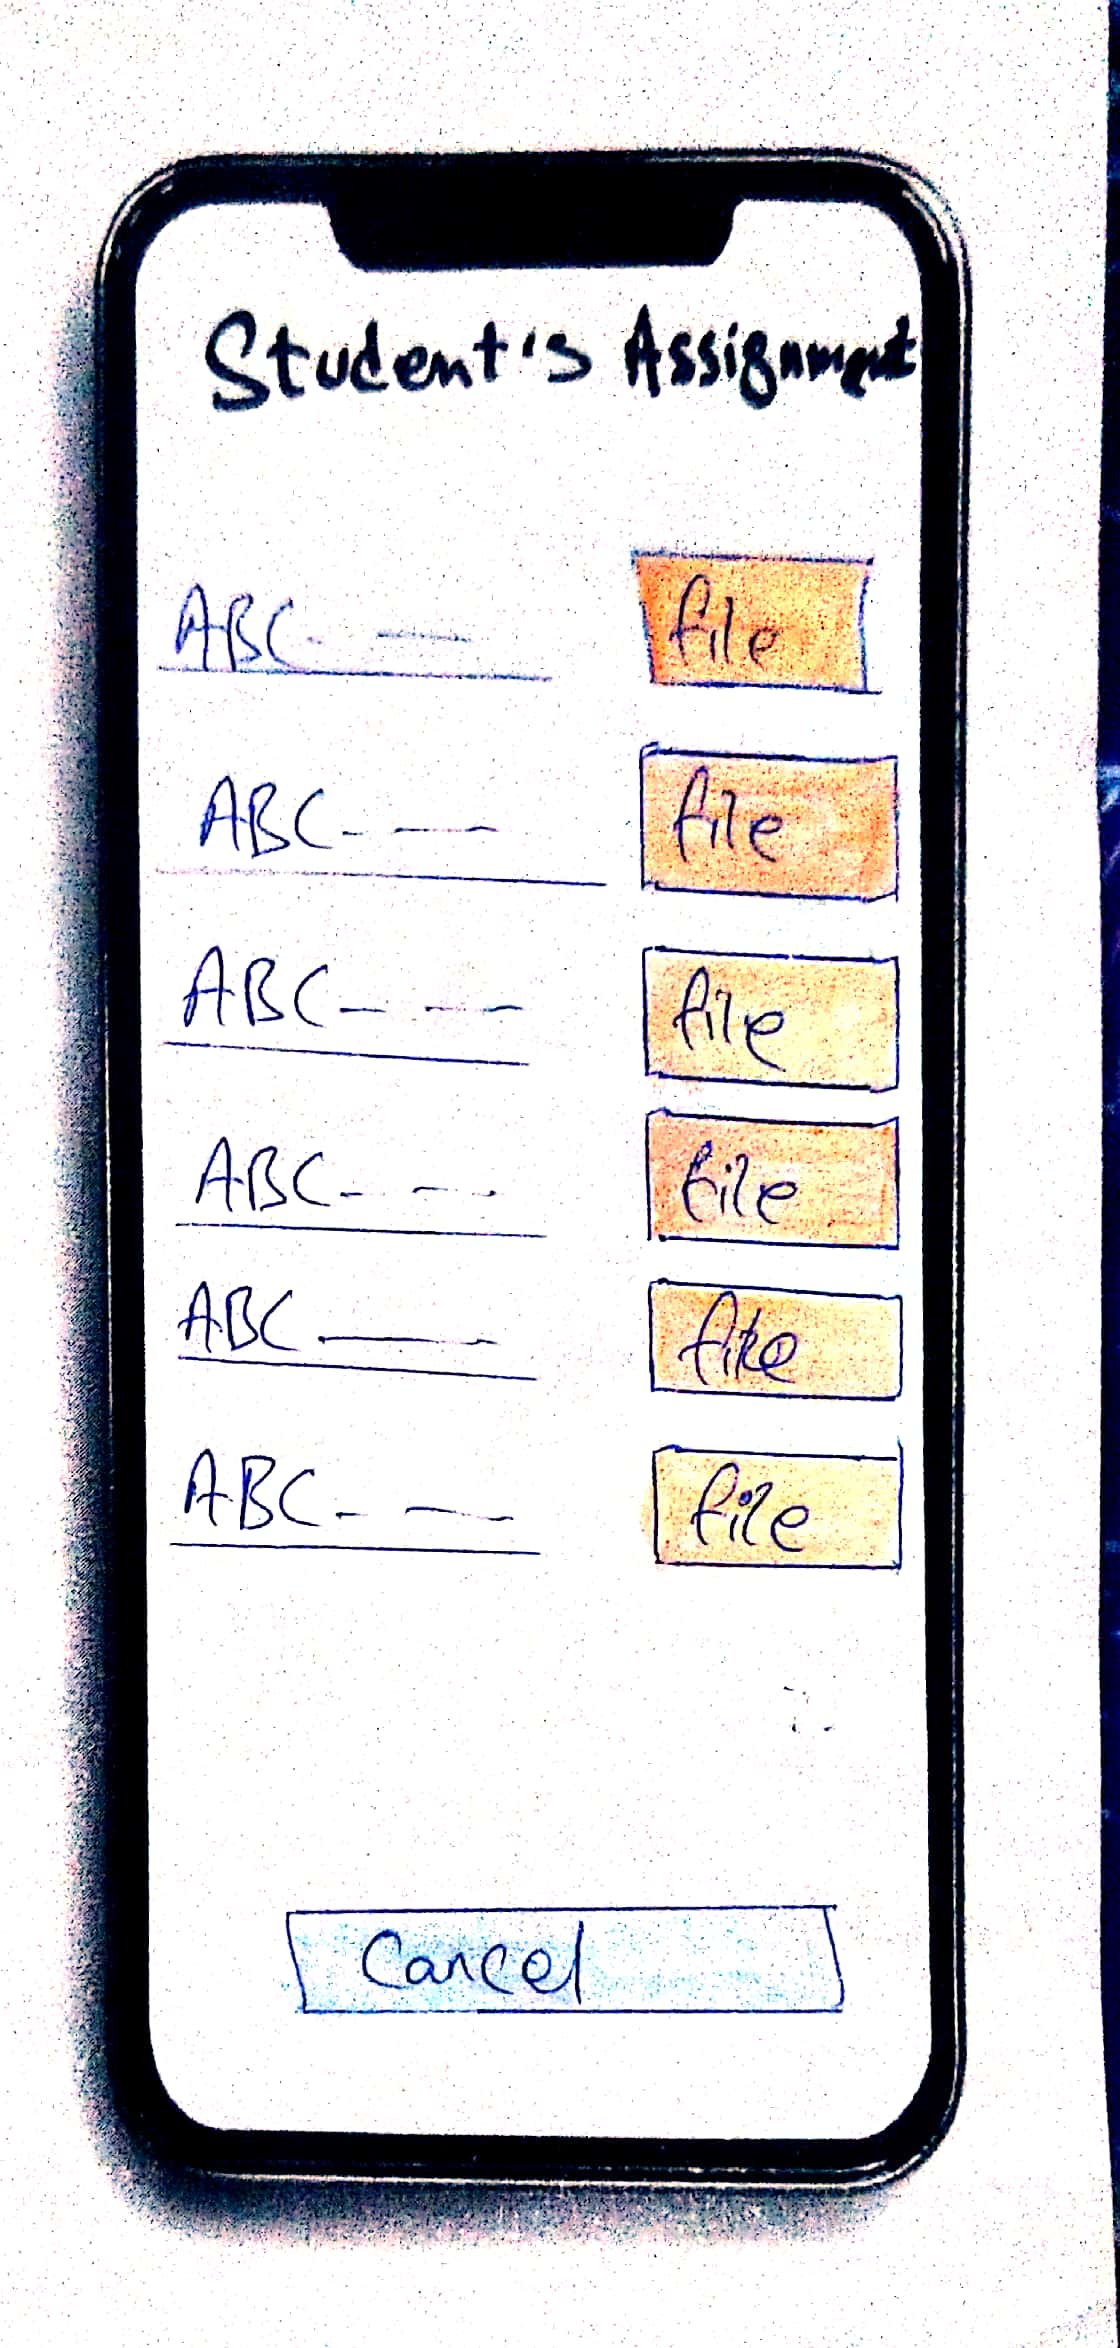 Student's Assignment
ABC- — file
ABC- — file
ABC- — — file
ABC- — file
ABC — file
ABC- — file
Cancel